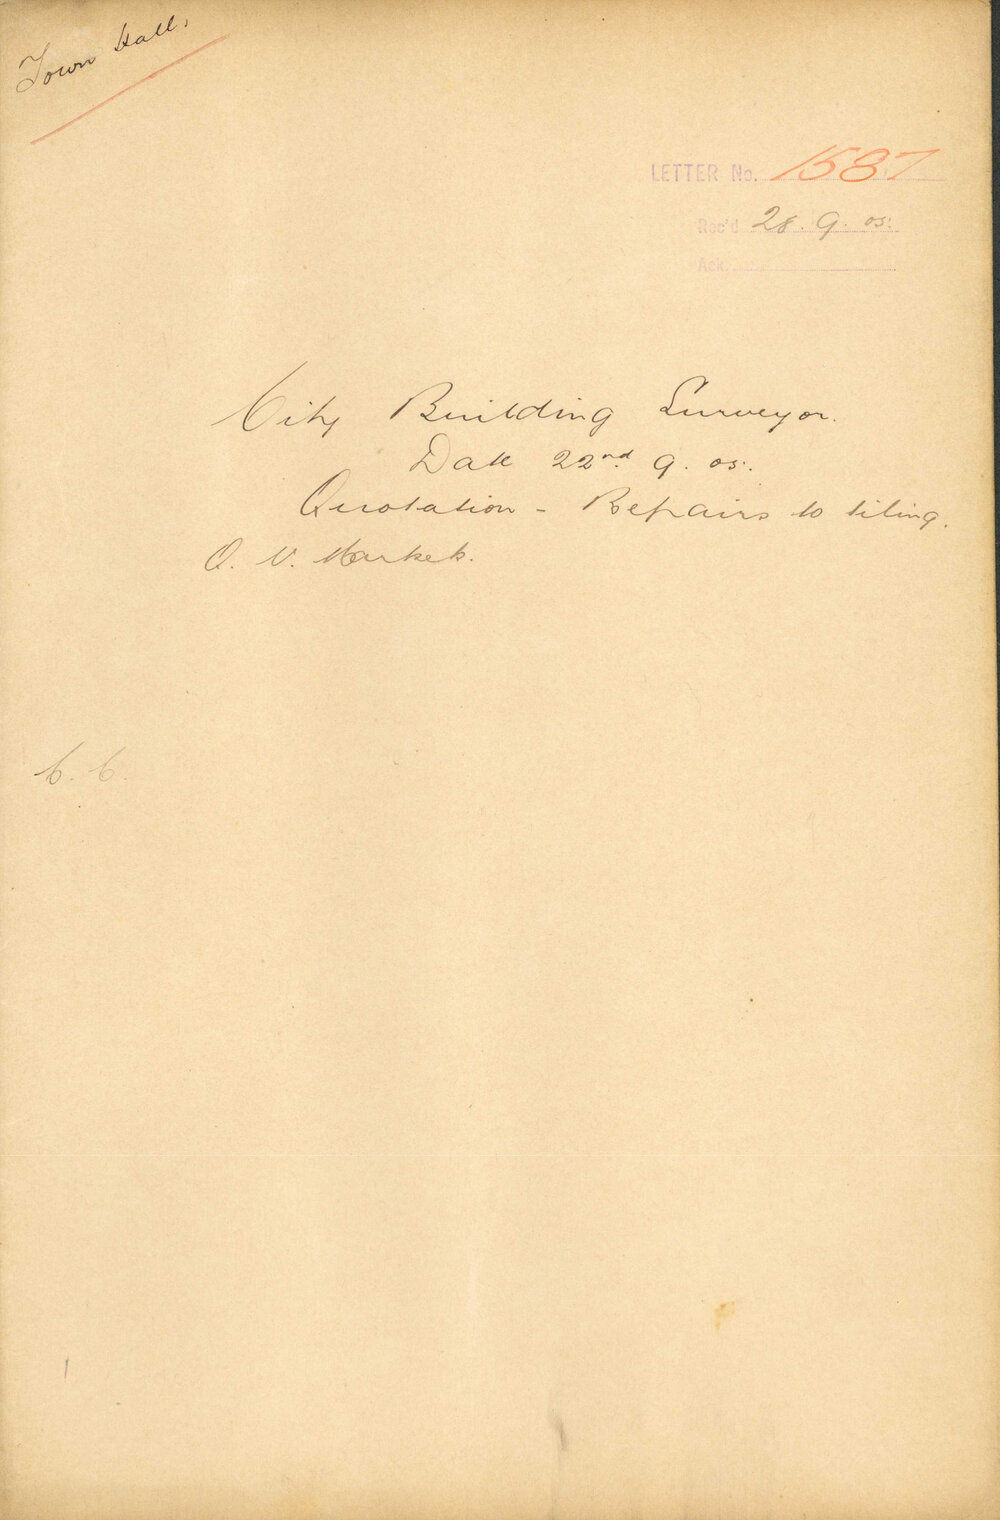 Town Hall.
LETTER No. 1587
Rec'd 28. 9. 05.
Ack.
City Building Surveyor.
Date 22nd. 9. 05.
Quotation - Repairs to tiling.
Q. V. Markets.
C. C.